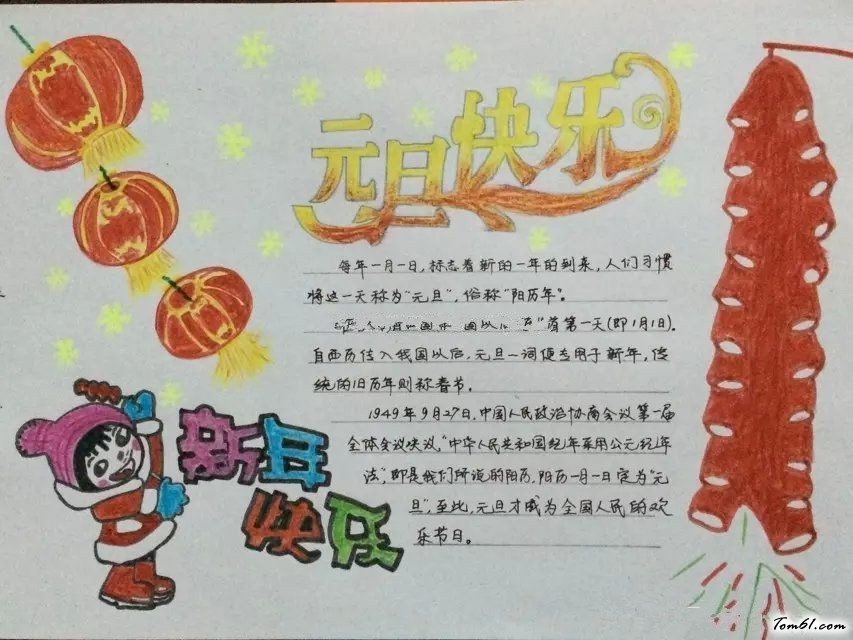 元旦快乐
每年一月一日，标志着新的一年的到来，人们习惯
将这一天称为"元旦"，俗称"阳历年"。
首第一天(即1月1日)．
自西历传入我国以后，元旦一词便专用于新年，传
统的旧历年则称春节。
1949年9月27日，中国人民政治协商会议第一届
全体会议决议，"中华人民共和国纪年采用公元纪年
法"，即是我们所说的阳历，阳历一月一日定为"元
旦"，至此，元旦才成为全国人民的欢
乐节日。
新年
快乐
Tom61.com